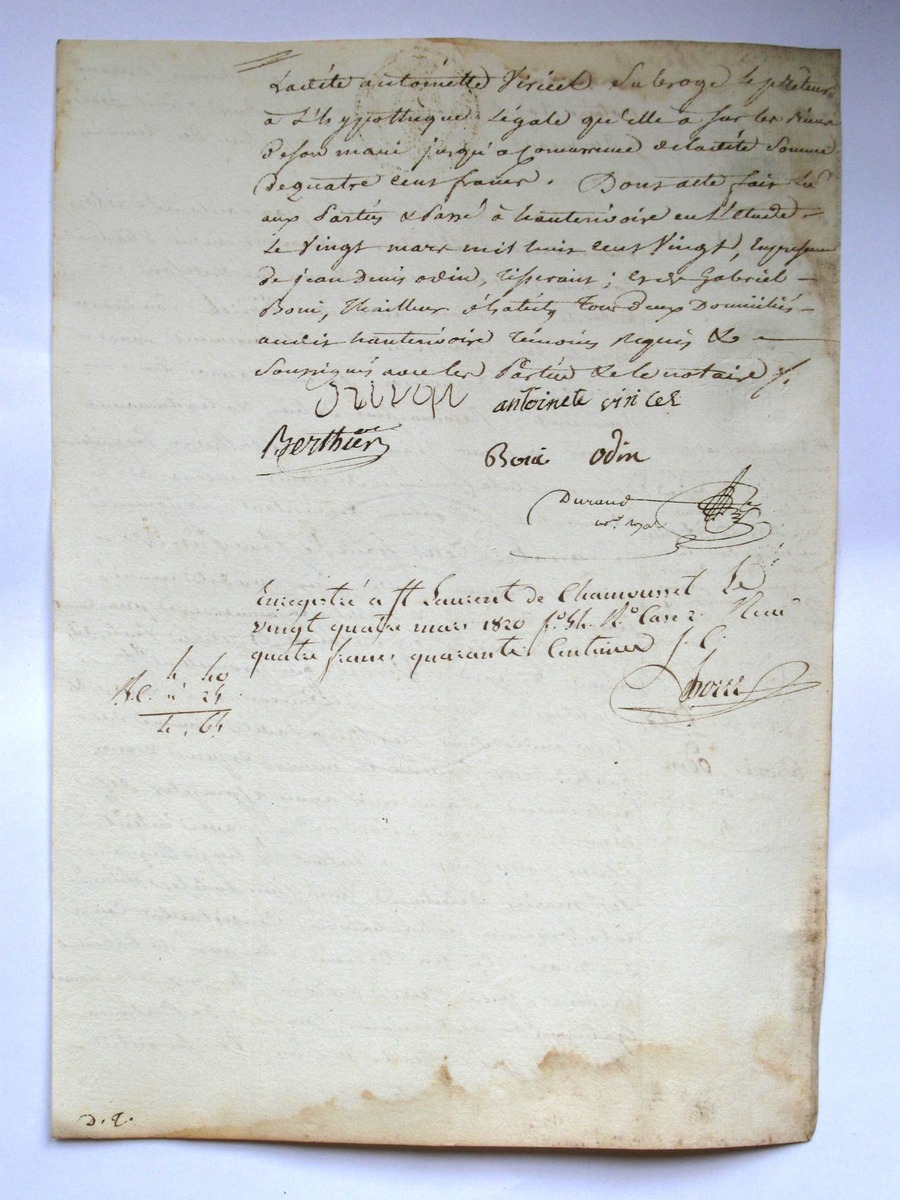 Ladite antoinette Viricel Subroge le prêteur
à L'hypothèque Légale qu'elle à Sur les biens
de Son mari jusqu'a concurrence de ladite Somme
de quatre cens francs. Dont acte fait lu
aux Parties & Passé à hauterivoire en L'étude
Le Vingt mars mil huit cent Vingt, En presence
de jean Denis odin, tisserant; & de Gabriel
Boui, thailleur d'habits, tous deux Domiciliés
audit hauterivoire témoins requis &
Soussignés avec les Parties & le notaire
antoinete viricel
Berthier
Boui odin
Durand
not. roy.
Enregistré à St Laurent de Chamousset Le
vingt quatre mars 1820 fo. Vo. Case 2. Reçu
quatre francs quarante Centimes
4. 40
24
4. 64
D. T.